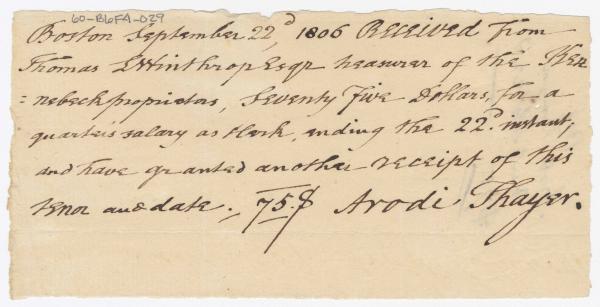 60-B6FA-D29
Boston September 22d 1806 Received from
Thomas L Winthrop Esqr treasurer of the Ken
=nebeck proprietors, Seventy Five Dollars, for a
quarters salary as Clerk, ending the 22d. instant,
and have granted another receipt of this
tenor and date. 75.$ Arodi Thayer.